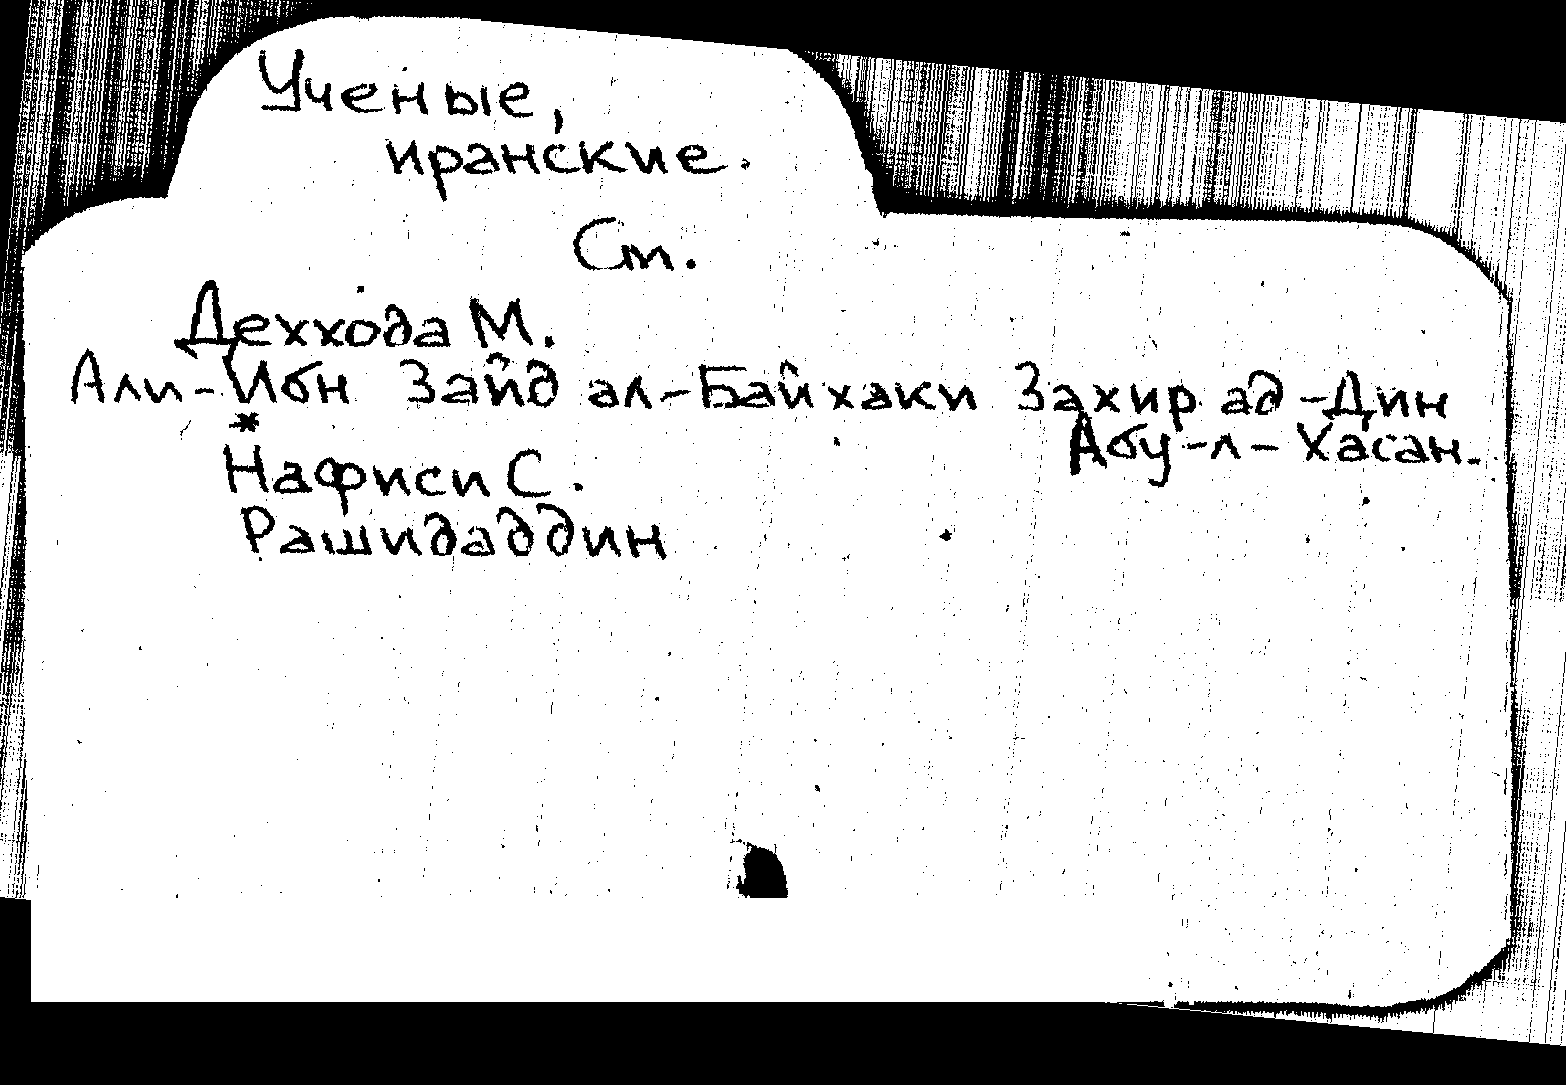 Ученые,
иранские.
Ст.
Деххода М.
Али-Ибн Зайд ал-Байхаки Захир ад-Дин
Абу-л-Хасан.
*
Нафиси С.
Рашидаддин